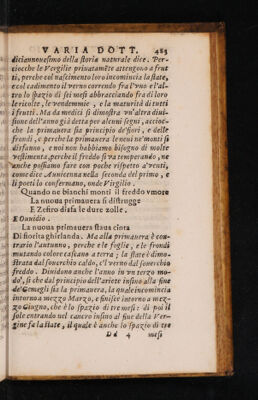 VARIA DOTT. 483
diciannouesimo della storia naturale dice. Per-
cioche le Vergilie priuatamẽte attengono a frut
ti, perche col nascimento loro incomincia la state,
e col cadimento il verno correndo fra l'vno e l'al-
tro lo spazio di sei mesi abbracciando fra di loro
le ricolte, le vendemmie, e la maturità di tutti
i frutti. Ma da medici si dimostra vn'altra diui-
sione dell'anno già detta per alcuni segni, accio-
che la primauera sia principio de'fiori, e delle
frondi, e perche la primauera le neui ne'monti si
disfanno, e noi non habbiamo bisogno di molte
vestimenta, perche il freddo si va temperando, ne
anche possiamo fare con poche rispetto a'venti,
come dice Auuicenna nella seconda del primo, e
li poeti lo confermano, onde Virgilio.
Quando ne bianchi monti il freddo vmore
La nuoua primauera si distrugge
E Zefiro disfa le dure zolle.
E Ouuidio.
La nuoua primauera staua cinta
Di fiorita ghirlanda. Ma alla primauera è con-
trario l'autunno, perche e le foglie, e le frondi
mutando colore cascano a terra; la state è dimo-
strata dal souerchio caldo, e'l verno dal souerchio
freddo. Diuidono anche l'anno in vn terzo mo-
do', si che dal principio dell'ariete insino alla fine
de'Gemegli sia la primauera, la quale incomincia
intorno a mezzo Marzo, e finisce intorno a mez-
zo Giugno, che è lo spazio di tre mesi: di poi il
sole entrando nel cancro insino al fine della Ver-
gine fa la state, il quale è anche lo spazio di tre
Dd 4 mesi